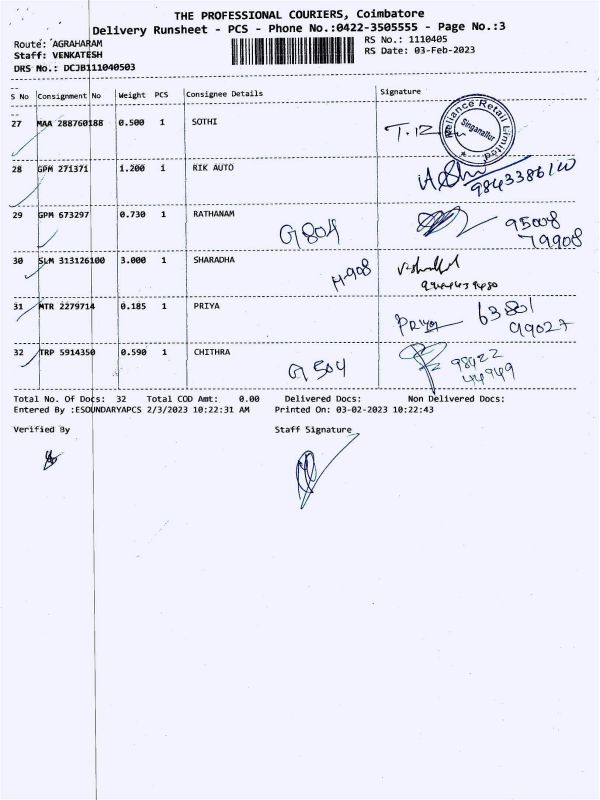 THE PROFESSIONAL COURIERS, Coimbatore
Delivery Runsheet - PCS - Phone No.:0422-3505555 - Page No.:3
Route: AGRAHARAM
RS No.: 1110405
Staff: VENKATESH
RS Date: 03-Feb-2023
DRS No.: DCJB111040503
S No Consignment No Weight PCS Consignee Details Signature
27 MAA 288760188 0.500 1 SOTHI
Reliance Retail Limited
Singanallur
28 GPM 271371 1.200 1 RIK AUTO
9843386120
29 GPM 673297 0.730 1 RATHANAM
G804
95008
79908
30 SLM 313126100 3.000 1 SHARADHA
H-908
31 MTR 2279714 0.185 1 PRIYA
Priya
63801
99027
32 TRP 5914350 0.590 1 CHITHRA
G 504
98422
44949
Total No. Of Docs: 32 Total COD Amt: 0.00 Delivered Docs: Non Delivered Docs:
Entered By :ESOUNDARYAPCS 2/3/2023 10:22:31 AM Printed On: 03-02-2023 10:22:43
Verified By Staff Signature